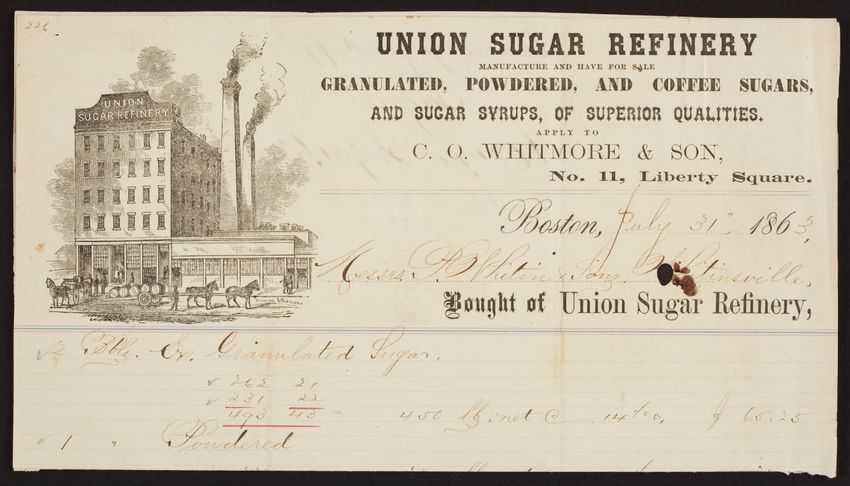 226
UNION
SUGAR REFINERY
UNION SUGAR REFINERY
MANUFACTURE AND HAVE FOR SALE
GRANULATED, POWDERED, AND COFFEE SUGARS,
AND SUGAR SYRUPS, OF SUPERIOR QUALITIES.
APPLY TO
C. O. WHITMORE & SON,
No. 11, Liberty Square.
Boston, July 31" 1863
Messrs. P. Whitin & Sons, Whitinsville,
Bought of Union Sugar Refinery,
2 Bbls. Ex. Granulated Sugar.
262 21
231 22
493 43 450 lbs net @ 14 1/2 c, $ 65.25
1 " Powdered